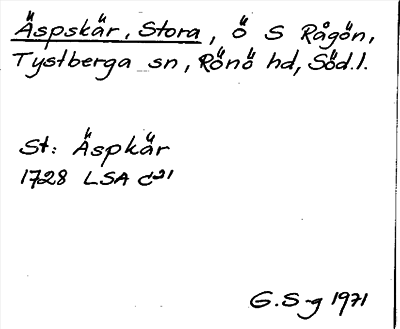 Äspskär, Stora, ö S Rågön,
Tystberga sn, Rönö hd, Söd.l.
St: Äspkär
1728 LSA C21
G.S-g 1971